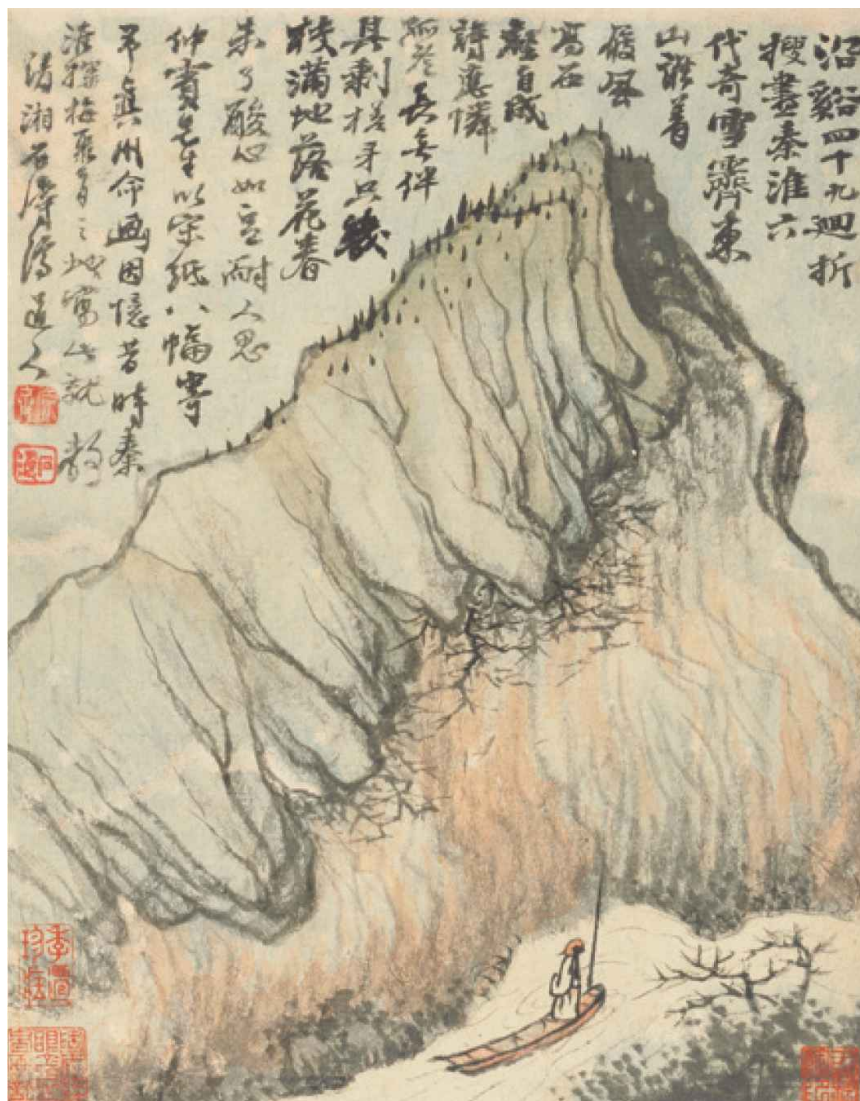 沿谿四十九迴折
搜盡秦淮六
代奇雪霽東
山誰着
屐風
高石
壑自成
詩應憐
孤老長無伴
具剩槎牙只幾
枝滿地落花春
未了酸心如豆耐人思
仲賓先生以宋紙八幅寄
真州命畫因憶昔時秦
淮探梅之地寫此就教
清湘石濤濟道人